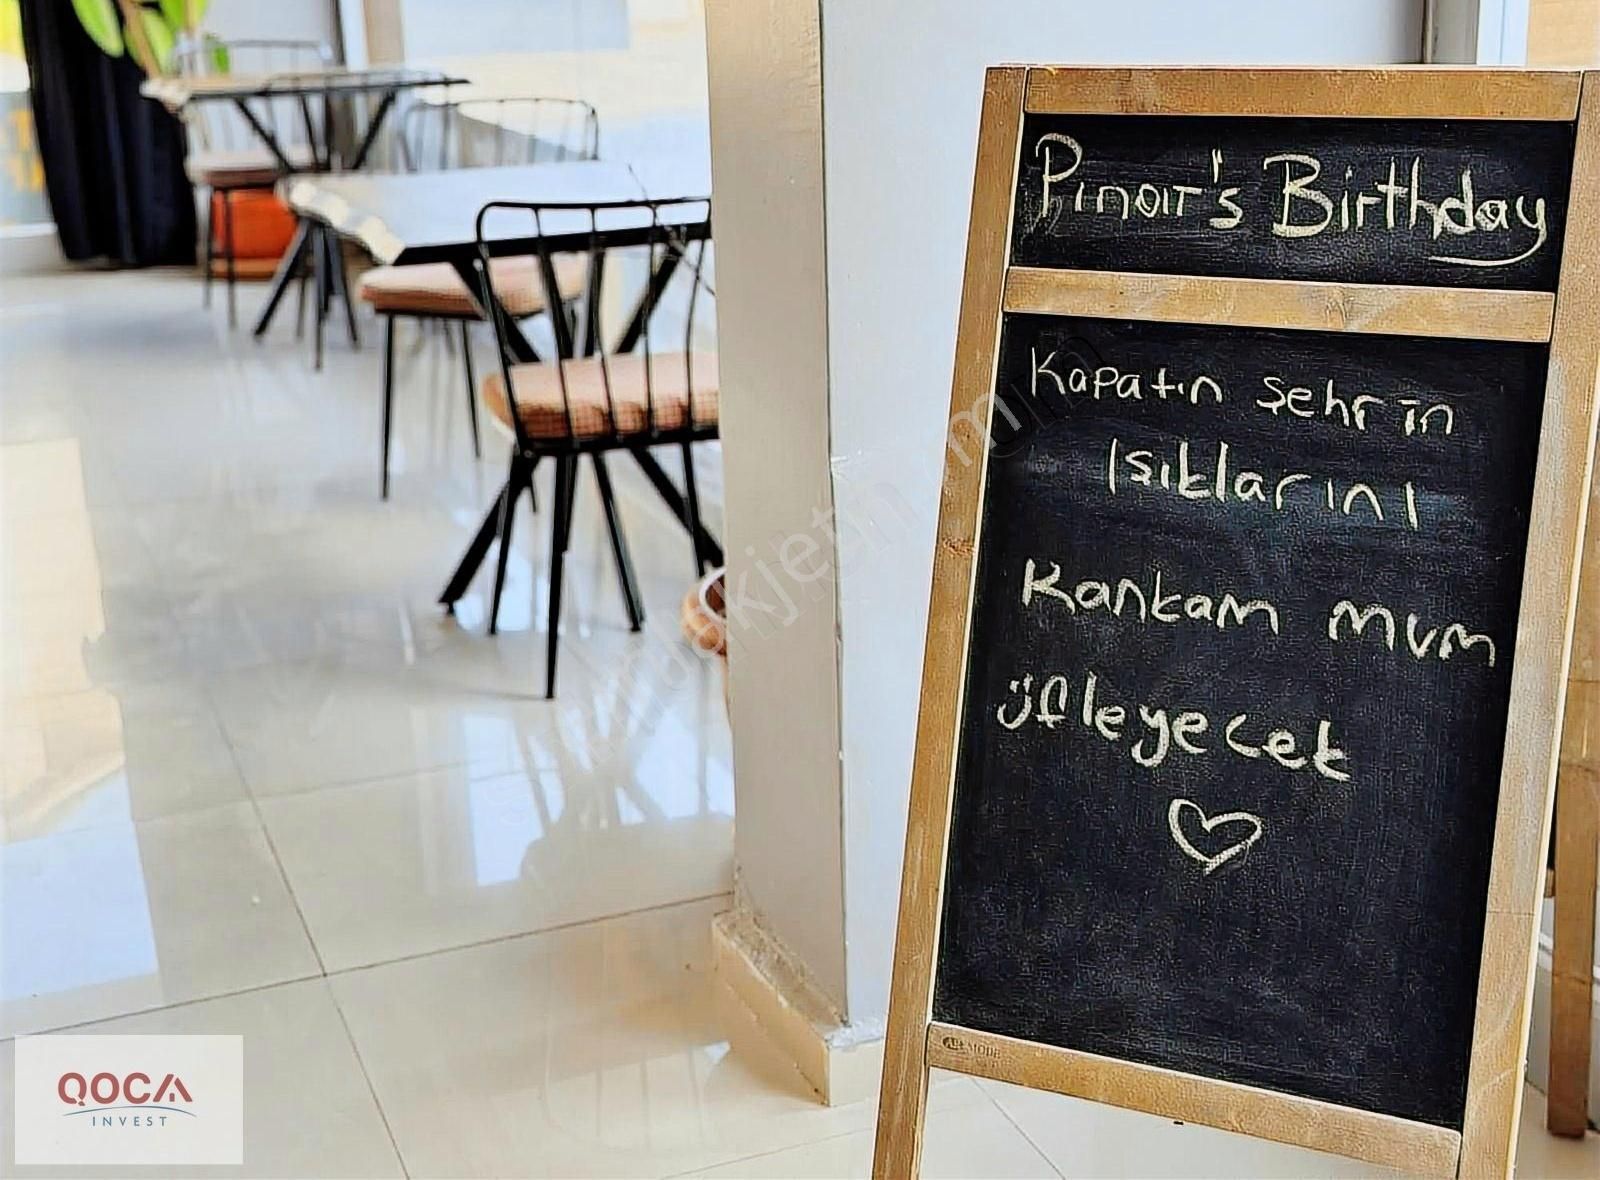 Pınar's Birthday
Kapatın şehrin
Işıklarını
Kankam mum
üfleyecek
MODE
QOCA
INVEST